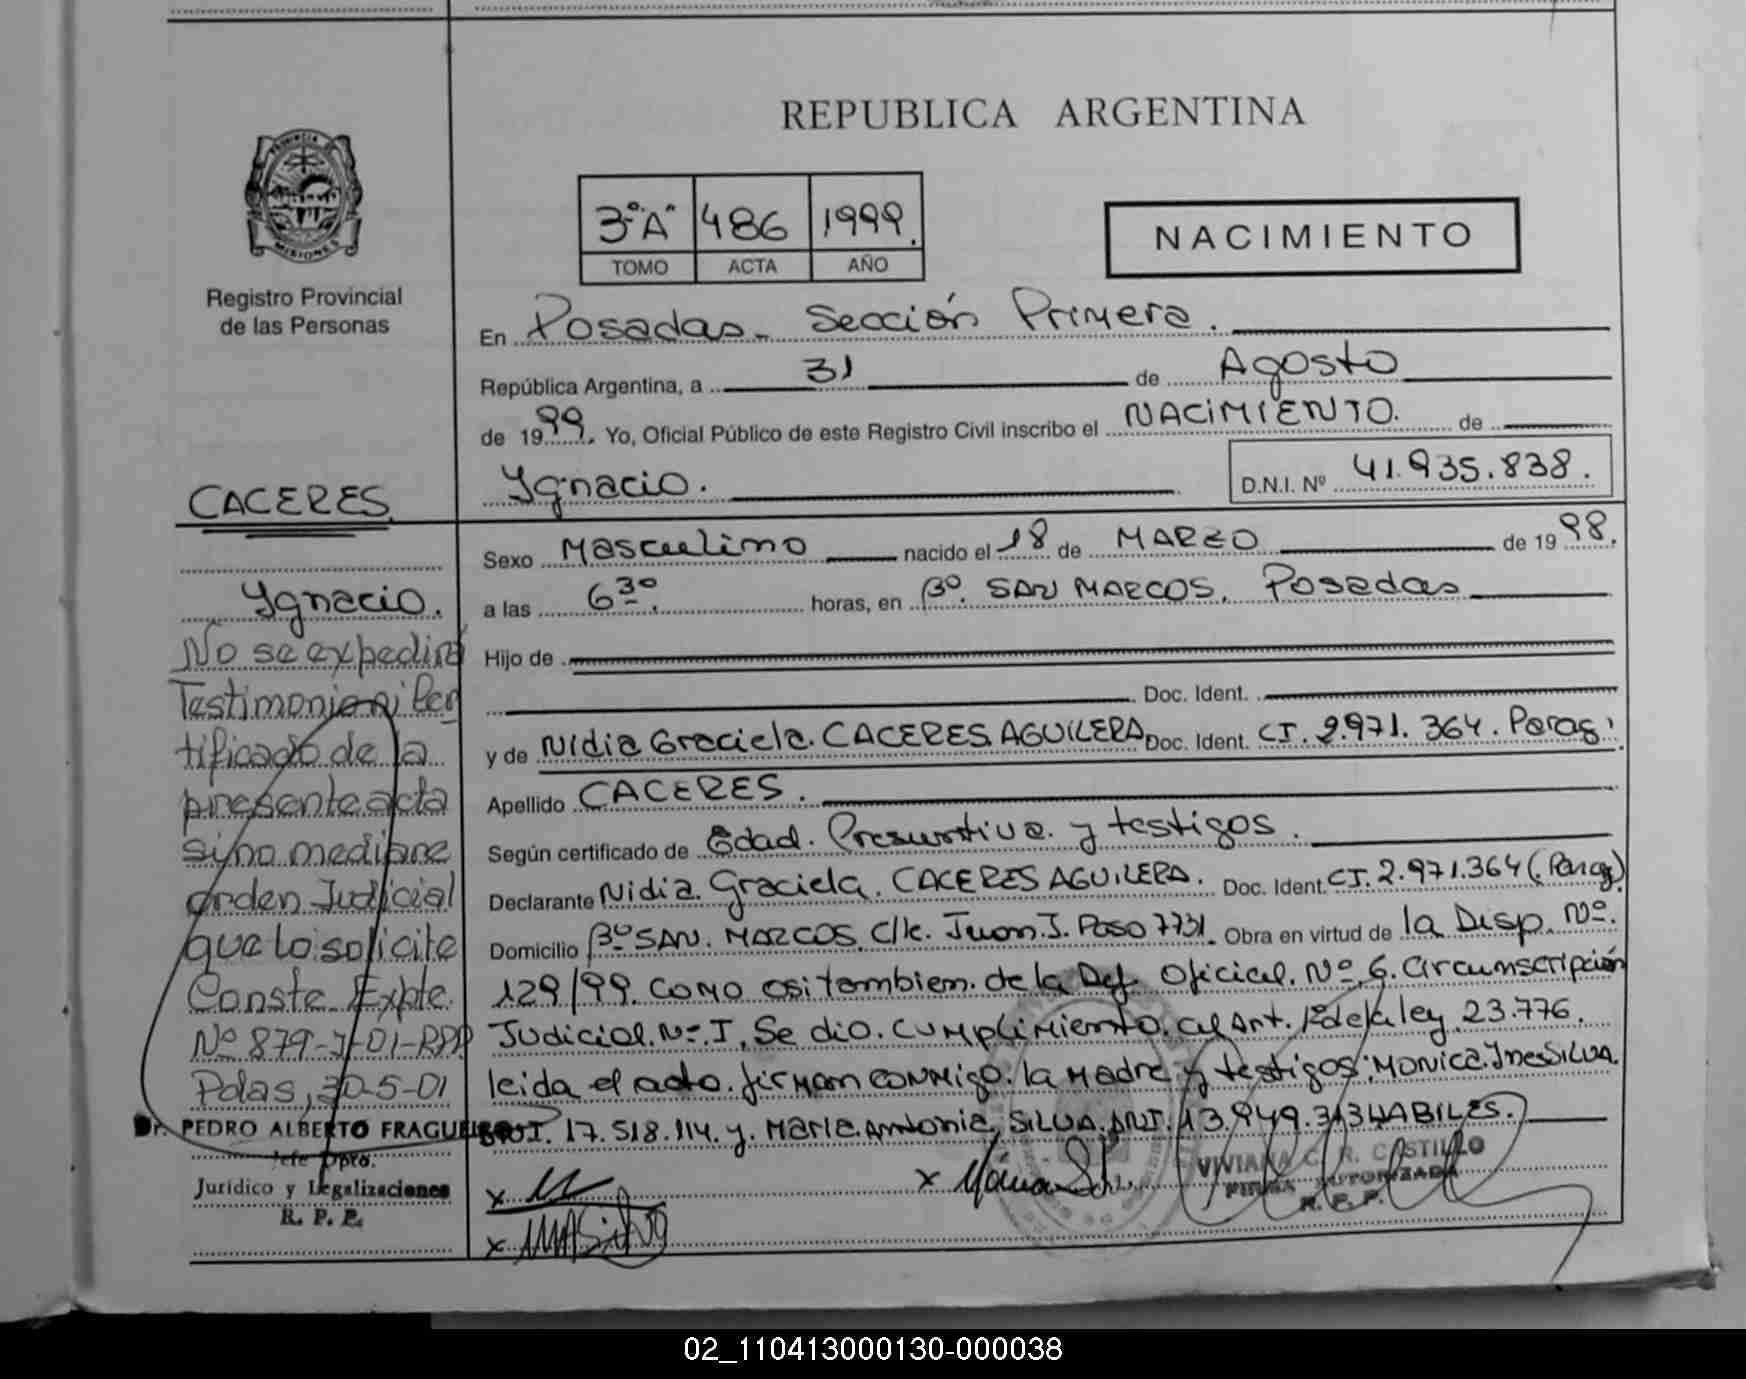 REPUBLICA ARGENTINA
PROVINCIA DE
MISIONES
Registro Provincial
de las Personas
3º"A" 486 1999.
TOMO ACTA AÑO
NACIMIENTO
En Posadas - Sección Primera.
República Argentina, a 31 de Agosto
de 1999. Yo, Oficial Público de este Registro Civil inscribo el NACIMIENTO. de
Ygnacio.
D.N.I. Nº 41.935.838.
Sexo Masculino nacido el 18 de MARZO de 1998.
a las 6³⁰. horas, en Bº. SAN MARCOS. Posadas
Hijo de
Doc. Ident.
y de Nidia Graciela. CACERES AGUILERA Doc. Ident. CI. 2.971.364. Parag.
Apellido CACERES.
Según certificado de Edad. Presuntiva y testigos.
Declarante Nidia Graciela. CACERES AGUILERA. Doc. Ident. CI. 2.971.364 (Parag)
Domicilio Bº SAN. MARCOS. C/le. Juan J. Paso 7731. Obra en virtud de la Disp. Nº.
129/99. como asi tambiem. de la Def. Oficial. Nº 6. Circunscripción
Judicial. Nº I. Se dio. cumplimiento. al Art. de la ley 23.776.
leida el acta. firman conmigo. la Madre y testigos: Monica Ines SILVA.
DNI. 17.518.114. y. Maria Antonia SILVA. DNI. 13.949.313 HABILES.
x
x
x
VIVIANA C. R. CASTILLO
FIRMA AUTORIZADA
R. P. P.
CACERES
Ygnacio.
No se expedirá
Testimonio ni Cer
tificado de la
presente acta
sino mediare
orden Judicial
que lo solicite
Conste Expte.
Nº 879-J-01-RPP
Pdas, 30-5-01
Dr. PEDRO ALBERTO
Jefe Dpto.
Jurídico y Legalizaciones
R. P. P.
02_110413000130-000038